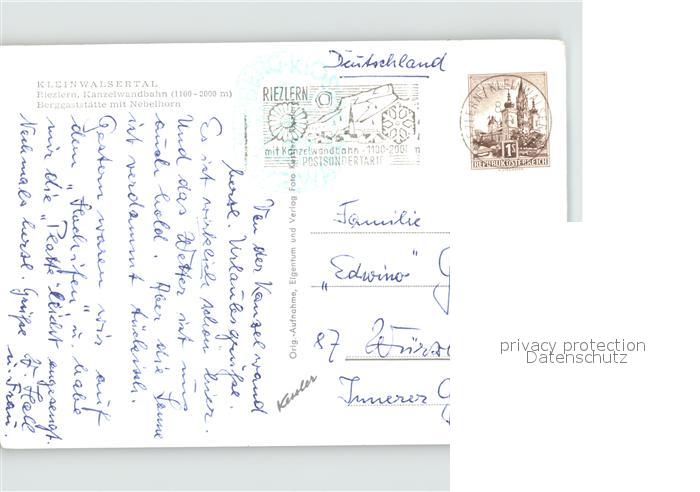 KLEINWALSERTAL
Riezlern, Kanzelwandbahn (1100-2000 m)
Berggaststätte mit Nebelhorn
Deutschland
RIEZLERN
mit Kanzelwandbahn · 1100-2000 m
POSTSONDERTARIF
1S
REPUBLIK ÖSTERREICH
Von der Kanzelwand
herzl. Urlaubsgrüße.
Es ist wirklich schön hier.
Und das Wetter ist uns
auch hold. Aber die Sonne
ist verdammt tückisch.
Gestern waren wir auf
dem "Hochifen" u. habe
mir die "Platte" leicht angesengt.
Nochmals herzl. Grüße
u. Frau.
Orig.-Aufnahme, Eigentum und Verlag Foto
Kessler
Familie
"Edwino"
87
Innerer
privacy protection
Datenschutz